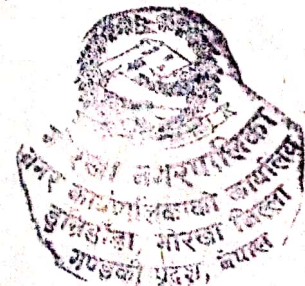 नगरपालिका
नगर कार्यपालिकाको कार्यालय
गोरखा जिल्ला
गण्डकी प्रदेश, नेपाल